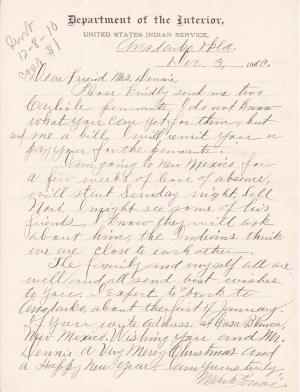 Sent
12-8-10
Department of the Interior,
UNITED STATES INDIAN SERVICE,
Anadarko Okla.
Dec. 3, 1910.
Dear Friend Mrs. Dennis
Please Kindly send me two
Carlisle pennants, I do not know
what you can get for them, but
send me a bill, I will remit you or
pay you for the pennants.
I am going to New Mexico for
a few weeks of leave of absence,
will start Sunday night, Tell
I might see some of his
friends, I know they will ask
about him, the Indians think
we are close to each other.
The family and myself all are
well and all send best wishes
to you. I expect to back to
Anadarko about the first of January.
If you write address at Casa Blanca,
New Mexico. Wishing you and Mr.
Dennis a Very Merry Christmas and
a Happy New Year. I am yours truly,